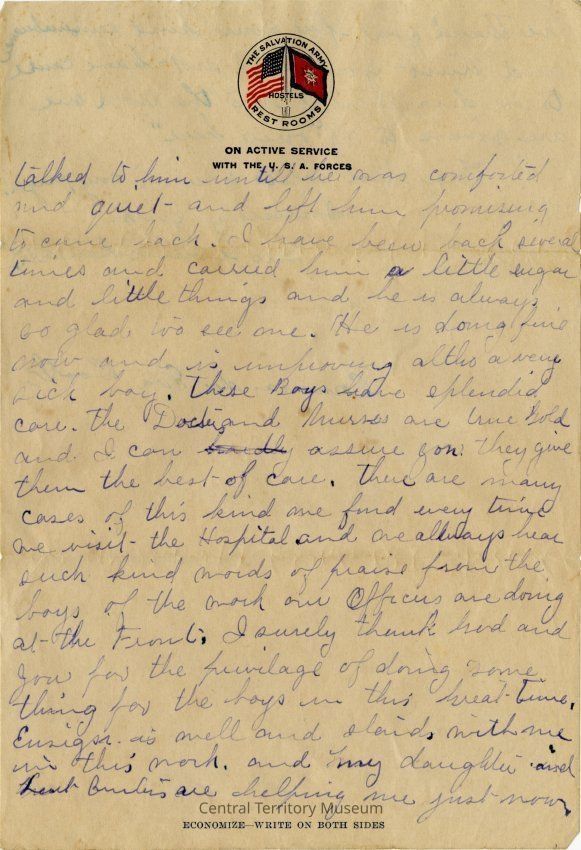 THE SALVATION ARMY
HOSTELS
REST ROOMS
ON ACTIVE SERVICE
WITH THE U. S. A. FORCES
talked to him until he was comforted
and quiet - and left him promising
to come back. I have been back several
times and carried him a little sugar
and little things and he is always
so glad too see me. He is doing fine
now and is improving altho a very
sick boy. These Boys have splendid
care. the Doctors and Nurses are true Gold
and I can hardly assure you they give
them the best of care. There are many
cases of this kind we find every time
we visit the Hospital and we always hear
such kind words of praise from the
boys of the work our Officers are doing
at the Front. I surely thank God and
you for the privilage of doing some
thing for the boys in this great time.
Ensign is well and stands with me
in this work. and my daughter and
are helping me just now.
Central Territory Museum
ECONOMIZE—WRITE ON BOTH SIDES